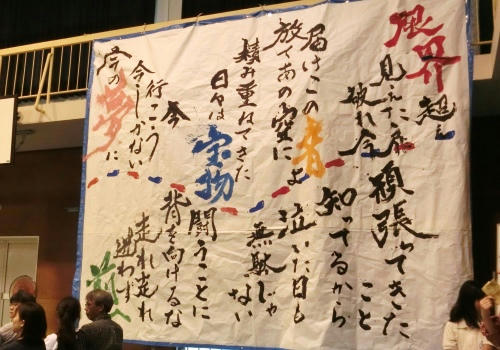 限界超え
見えた
破れ今
頑張ってきた
こと
知ってるから
届けこの音よ
放てあの空に
泣いた日も
無駄じゃない
積み重ねてきた
日々は宝物
闘うことに
背を向けるな
今
行こう
今しかない
今の夢に
走れ走れ
迷わず
前へ